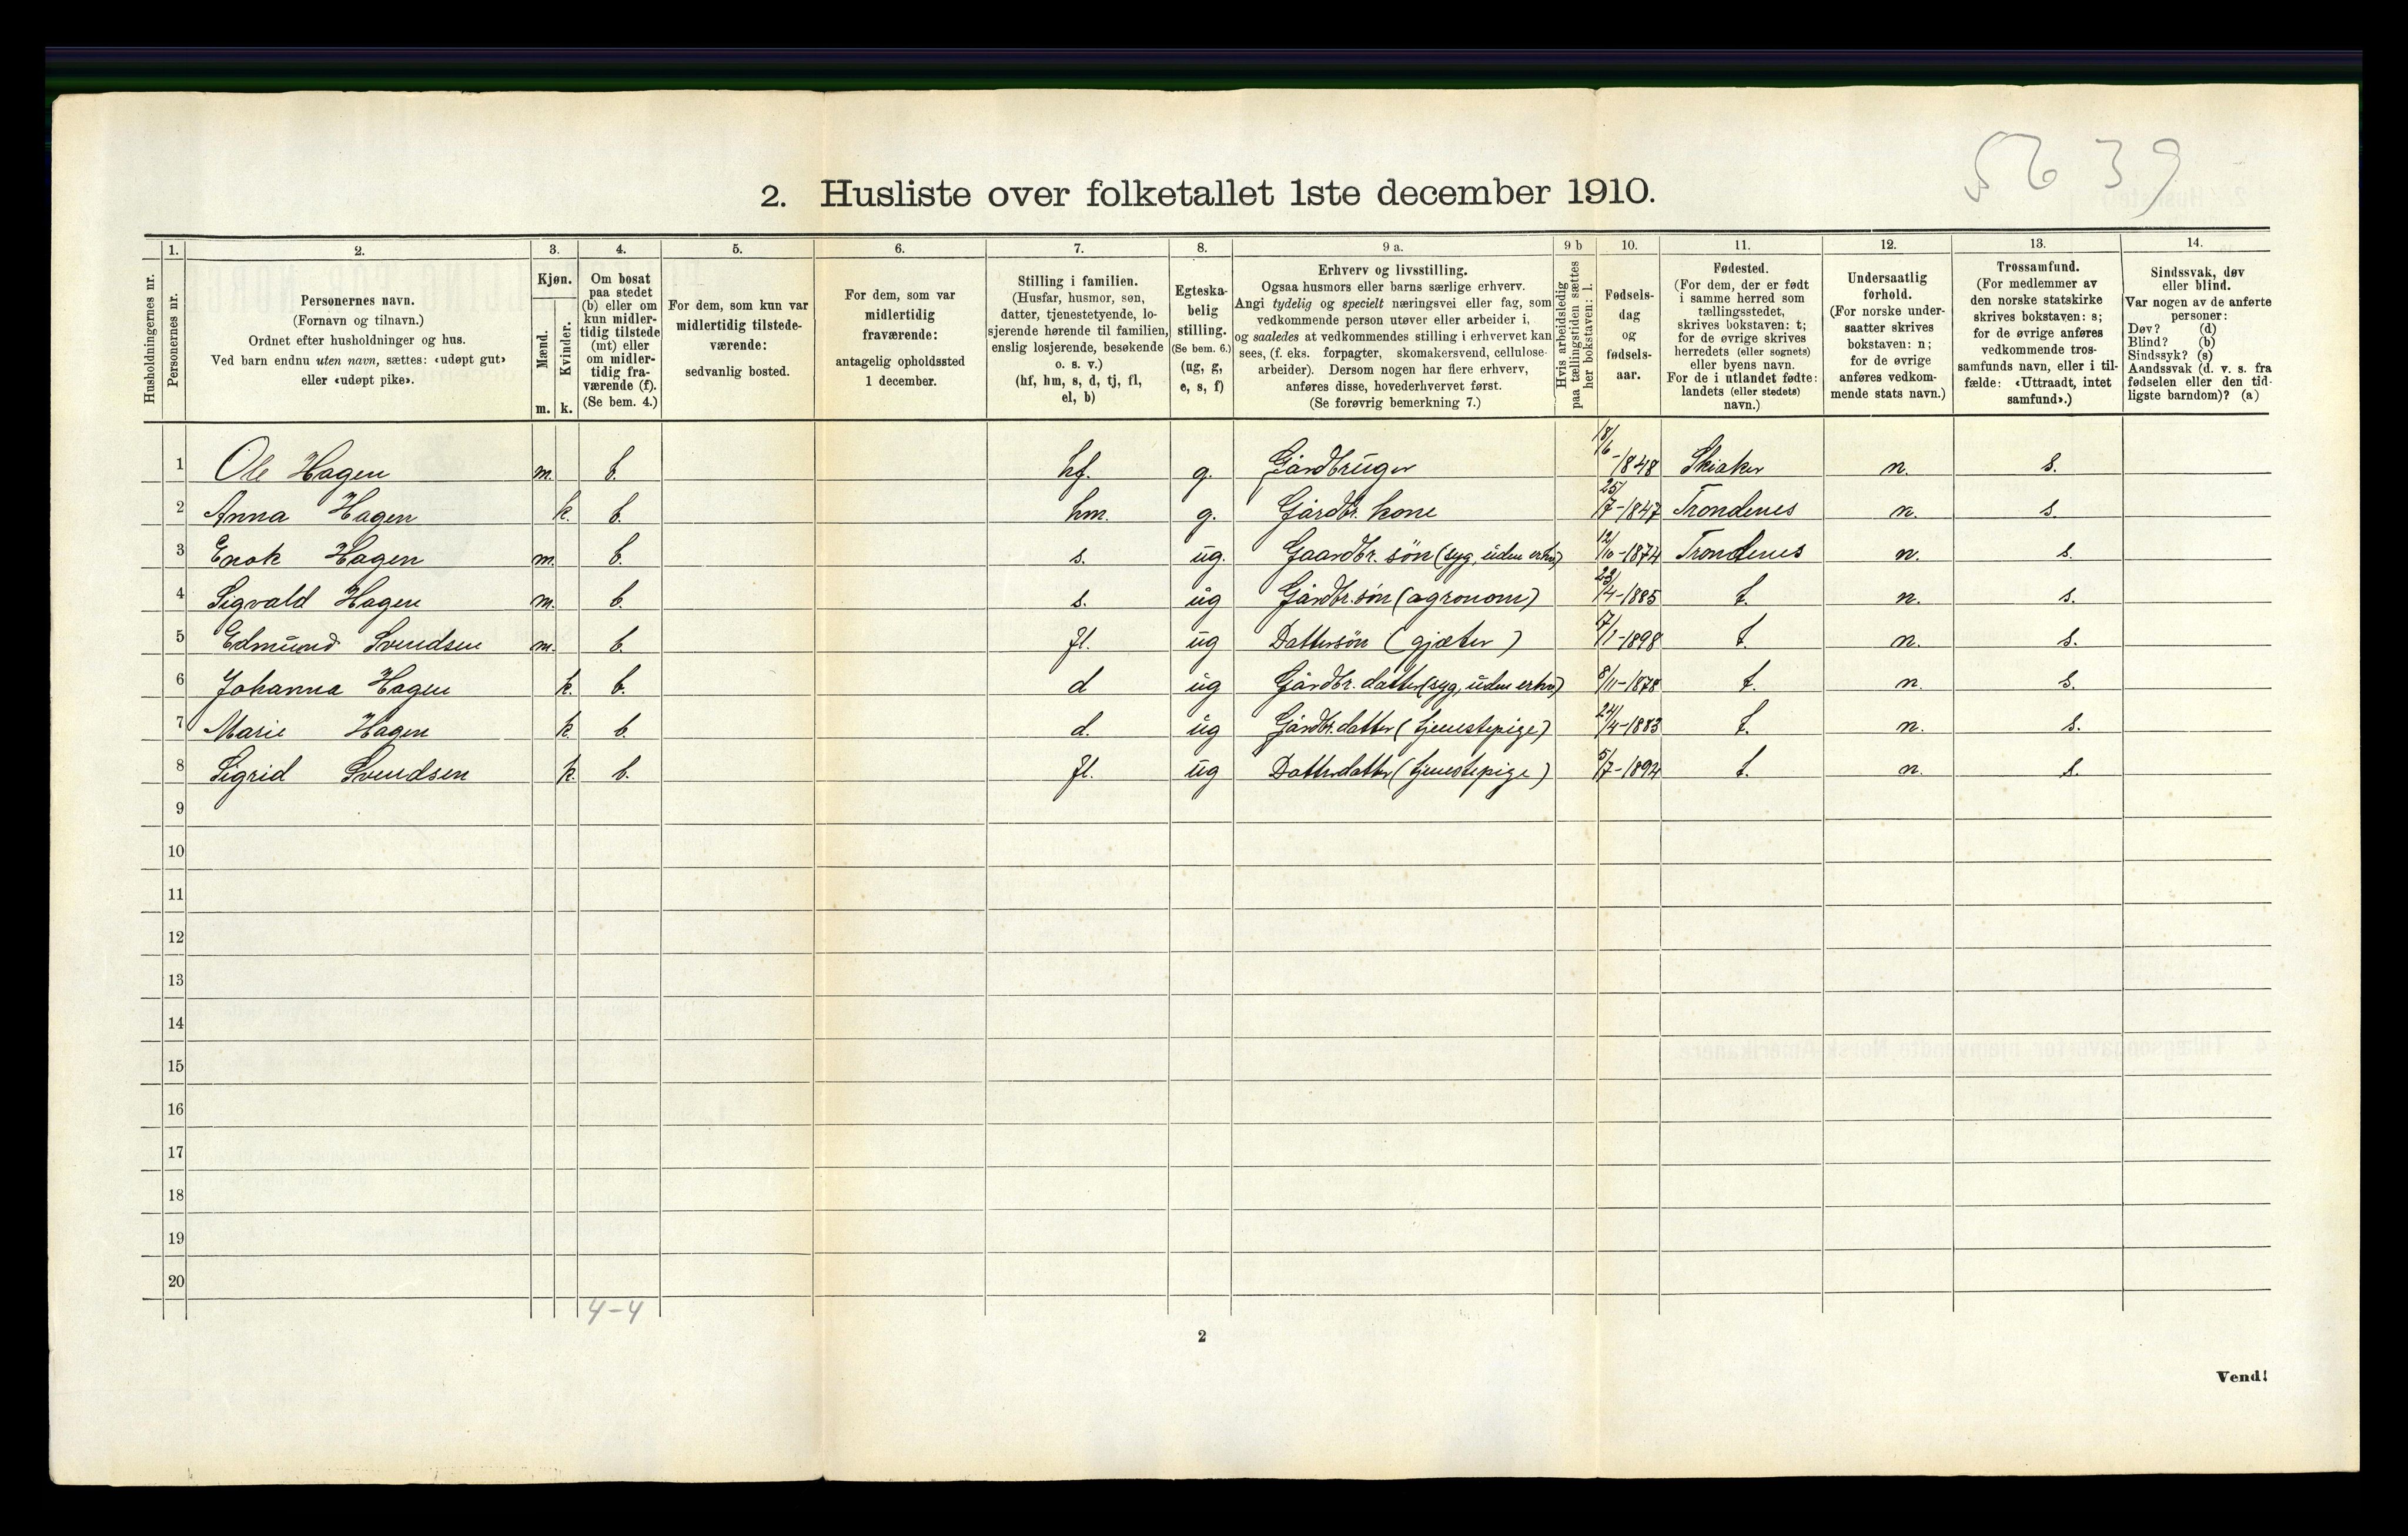 5639
2. Husliste over folketallet 1ste december 1910.
Husholdningernes nr.
1.
Personernes nr.
2.
Personernes navn.
(Fornavn og tilnavn.)
Ordnet efter husholdninger og hus.
Ved barn endnu uten navn, sættes: «udøpt gut»
eller «udøpt pike».
3.
Kjøn.
Mænd.
Kvinder.
m. k.
4.
Om bosat
paa stedet
(b) eller om
kun midler-
tidig tilstede
(mt) eller
om midler-
tidig fra-
værende (f).
(Se bem. 4.)
5.
For dem, som kun var
midlertidig tilstede-
værende:
sedvanlig bosted.
6.
For dem, som var
midlertidig
fraværende:
antagelig opholdssted
1 december.
7.
Stilling i familien.
(Husfar, husmor, søn,
datter, tjenestetyende, lo-
sjerende hørende til familien,
enslig losjerende, besøkende
o. s. v.)
(hf, hm, s, d, tj, fl,
el, b)
8.
Egteska-
belig
stilling.
(Se bem. 6.)
(ug, g,
e, s, f)
9 a.
Erhverv og livsstilling.
Ogsaa husmors eller barns særlige erhverv.
Angi tydelig og specielt næringsvei eller fag, som
vedkommende person utøver eller arbeider i,
og saaledes at vedkommendes stilling i erhvervet kan
sees, (f. eks. forpagter, skomakersvend, cellulose-
arbeider). Dersom nogen har flere erhverv,
anføres disse, hovederhvervet først.
(Se forøvrig bemerkning 7.)
9 b
Hvis arbeidsledig
paa tællingstiden sættes
her bokstaven: l.
10.
Fødsels-
dag
og
fødsels-
aar.
11.
Fødested.
(For dem, der er født
i samme herred som
tællingsstedet,
skrives bokstaven: t;
for de øvrige skrives
herredets (eller sognets)
eller byens navn.
For de i utlandet fødte:
landets (eller stedets)
navn.)
12.
Undersaatlig
forhold.
(For norske under-
saatter skrives
bokstaven: n;
for de øvrige
anføres vedkom-
mende stats navn.)
13.
Trossamfund.
(For medlemmer av
den norske statskirke
skrives bokstaven: s;
for de øvrige anføres
vedkommende tros-
samfunds navn, eller i til-
fælde: «Uttraadt, intet
samfund».)
14.
Sindssvak, døv
eller blind.
Var nogen av de anførte
personer:
Døv? (d)
Blind? (b)
Sindssyk? (s)
Aandssvak (d. v. s. fra
fødselen eller den tid-
ligste barndom)? (a)
1 Ole Hagen m. b. hf. g. Gårdbruger 18/6-1848 Skiaker n. s.
2 Anna Hagen k. b. hm. g. Gårdbr. kone 25/7-1847 Trondenes n. s.
3 Enok Hagen m. b. s. ug. Gaardbr. søn (syg, uden erhv) 12/10-1874 Trondenes n. s.
4 Sigvald Hagen m. b. s. ug Gårdbr. søn (agronom) 23/4-1885 t. n. s.
5 Edmund Svendsen m. b. fl. ug Dattersøn (gjæter) 7/1-1898 t. n. s.
6 Johanna Hagen k. b. d ug Gårdbr. datter (syg, uden erhv) 8/11-1878 t. n. s.
7 Marie Hagen k. b. d. ug Gårdbr. datter (tjenestepige) 24/4-1883 t. n. s.
8 Sigrid Svendsen k. b. fl. ug Datterdatter (tjenestepige) 5/7-1892 t. n. s.
9
10
11
12
13
14
15
16
17
18
19
20
4-4
2
Vend!